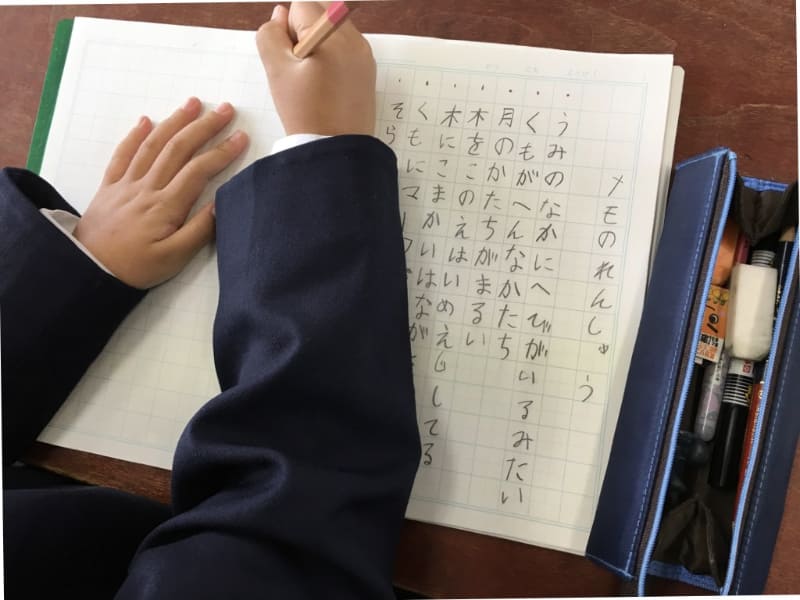 メモのれんしゅう
・うみのなかにへびがいるみたい
・くもがへんなかたち
・月のかたちがまるい
・木をこのえはいめえじしてる
・木にこまかいはなが
・くもにマ
・そら